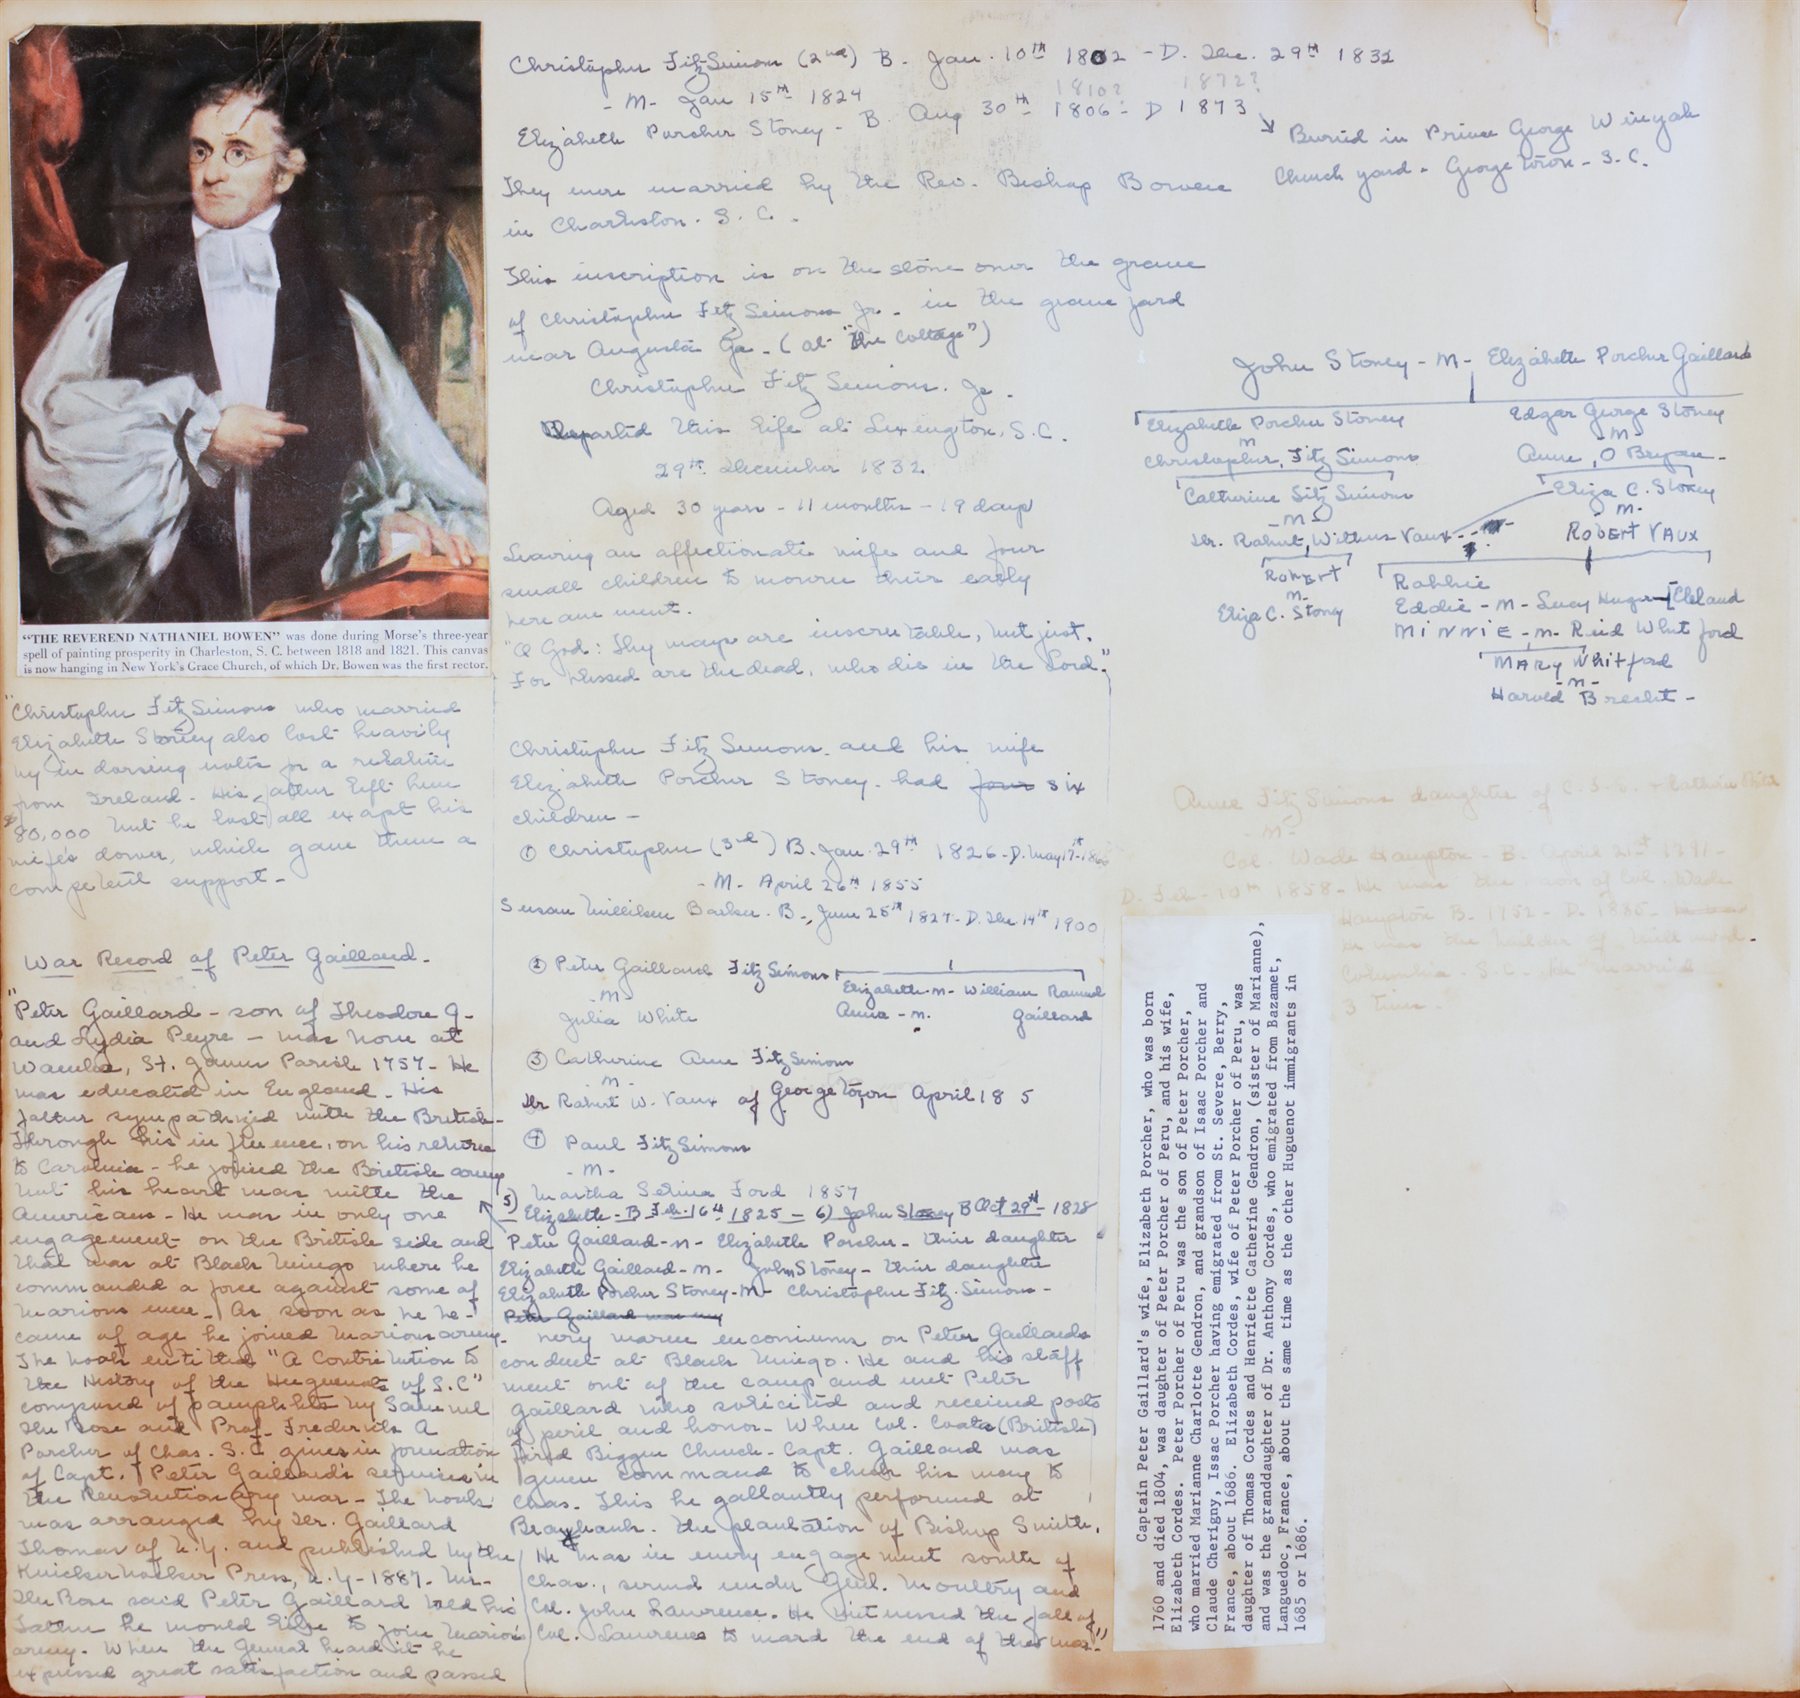 Christopher FitzSimons (2nd) B. Jan. 10th 1802 - D. Dec. 29th 1832
- M - Jan 15th 1824
1810? 1872?
Elizabeth Porcher Stoney - B. Aug 30th - 1806 - D 1873
Buried in Prince George Winyah
Church yard - Georgetown - S.C.
They were married by the Rev. Bishop Bowen
in Charleston. S. C. -
This inscription is on the stone over the grave
of Christopher FitzSimons Jr. - in the grave yard
near Augusta Ga. - (at "the Cottage")
Christopher FitzSimons. Jr.
Departed this life at Lexington, S.C.
29th December 1832
Aged 30 years - 11 months - 19 days
Leaving an affectionate wife and four
small children to mourn their early
bereavement.
"O God: Thy ways are inscrutable, but just,
For blessed are the dead, who die in the Lord."
Christopher FitzSimons and his wife
Elizabeth Porcher Stoney - had four six
children -
① Christopher (3rd) B. Jan. 29th 1826 - D. May 17th 1866
- M - April 26th 1855
Susan Milliken Barker. B., June 25th 1827 - D. Dec 14th 1900
② Peter Gaillard FitzSimons
- M -
Julia White
Elizabeth - m - William Ravenel
Anna - m. Gaillard
③ Catherine Anne FitzSimons
m -
Dr Robert W. Vaux of Georgetown April 18 5
④ Paul FitzSimons
- M -
Martha Selina Ford 1857
5) Elizabeth - B Feb. 16th 1825 - 6) John Stoney B Oct 29th - 1828
Peter Gaillard - m - Elizabeth Porcher - their daughter
Elizabeth Gaillard - m - John Stoney - their daughter
Elizabeth Porcher Stoney - M - Christopher FitzSimons -
Peter Gaillard was my
very warm encomiums on Peter Gaillards
conduct at Black Mingo. He and his staff
went out of the camp and met Peter
Gaillard who solicited and received posts
of peril and honor. When Col. Coats (British)
fired Biggin Church - Capt. Gaillard was
given command to check his way to
Chas. This he gallantly performed at
Brabank. The plantation of Bishop Smith.
He was in every engagement south of
Chas., served under Genl. Moultry and
Col. John Lawrence. He witnessed the fall of
Col. Lawrence toward the end of the war."
"THE REVEREND NATHANIEL BOWEN" was done during Morse's three-year
spell of painting prosperity in Charleston, S. C. between 1818 and 1821. This canvas
is now hanging in New York's Grace Church, of which Dr. Bowen was the first rector.
"Christopher FitzSimons who married
Elizabeth Stoney also lost heavily
by indorsing notes for a relative
from Ireland - His father left him
$80,000 but he lost all except his
wife's dower, which gave them a
competent support -
War Record of Peter Gaillard -
"Peter Gaillard - son of Theodore G -
and Lydia Peyre - was born at
Wambaw, St. James Parish 1757 - He
was educated in England - His
father sympathized with the British -
Through his influence, on his return
to Carolina - he joined the British army
but his heart was with the
Americans - He was in only one
engagement on the British side and
that was at Black Mingo where he
commanded a force against some of
Marions men - As soon as he be-
came of age he joined Marions army -
The book entitled "A Contribution to
the History of the Huguenots of S.C"
composed of pamphlets by Samuel
Du Bose and Prof. Frederick A
Porcher of Chas. S.C gives information
of Capt. Peter Gaillard's services in
the Revolutionary war - The book
was arranged by Dr. Gaillard
Thomas of N.Y. and published by the
Knickerbocker Press, N.Y - 1887 - Mr.
Du Bose said Peter Gaillard told his
father he would like to join Marion's
army. When the General heard it he
expressed great satisfaction and passed
John Stoney - M - Elizabeth Porcher Gaillard
Elizabeth Porcher Stoney
m
Christopher FitzSimons
Catherine FitzSimons
- M -
Dr. Robert Withers Vaux - - ?
Robert
m -
Eliza C. Stoney
Edgar George Stoney
- M -
Anne O Bryan -
Eliza C. Stoney
- M -
ROBERT VAUX
Robbie
Eddie - M - Lucy Huger - Cleland
MINNIE - m - Reid Whitford
MARY Whitford
- m -
Harold Brecht -
Anne FitzSimons daughter of C. F. S. + Catherine Pritchard
- M -
Col. Wade Hampton - B. April 21st 1791 -
D. Feb - 10th 1858 - He was the son of Col. Wade
Hampton B. 1752 - D. 1835 -
he was the builder of Millwood -
Columbia S.C. He married
3 times -
Captain Peter Gaillard's wife, Elizabeth Porcher, who was born
1760 and died 1804, was daughter of Peter Porcher of Peru, and his wife,
Elizabeth Cordes. Peter Porcher of Peru was the son of Peter Porcher,
who married Marianne Charlotte Gendron, and grandson of Isaac Porcher and
Claude Cherigny, Issac Porcher having emigrated from St. Severe, Berry,
France, about 1686. Elizabeth Cordes, wife of Peter Porcher of Peru, was
daughter of Thomas Cordes and Henriette Catherine Gendron, (sister of Marianne),
and was the granddaughter of Dr. Anthony Cordes, who emigrated from Bazamet,
Languedoc, France, about the same time as the other Huguenot immigrants in
1685 or 1686.